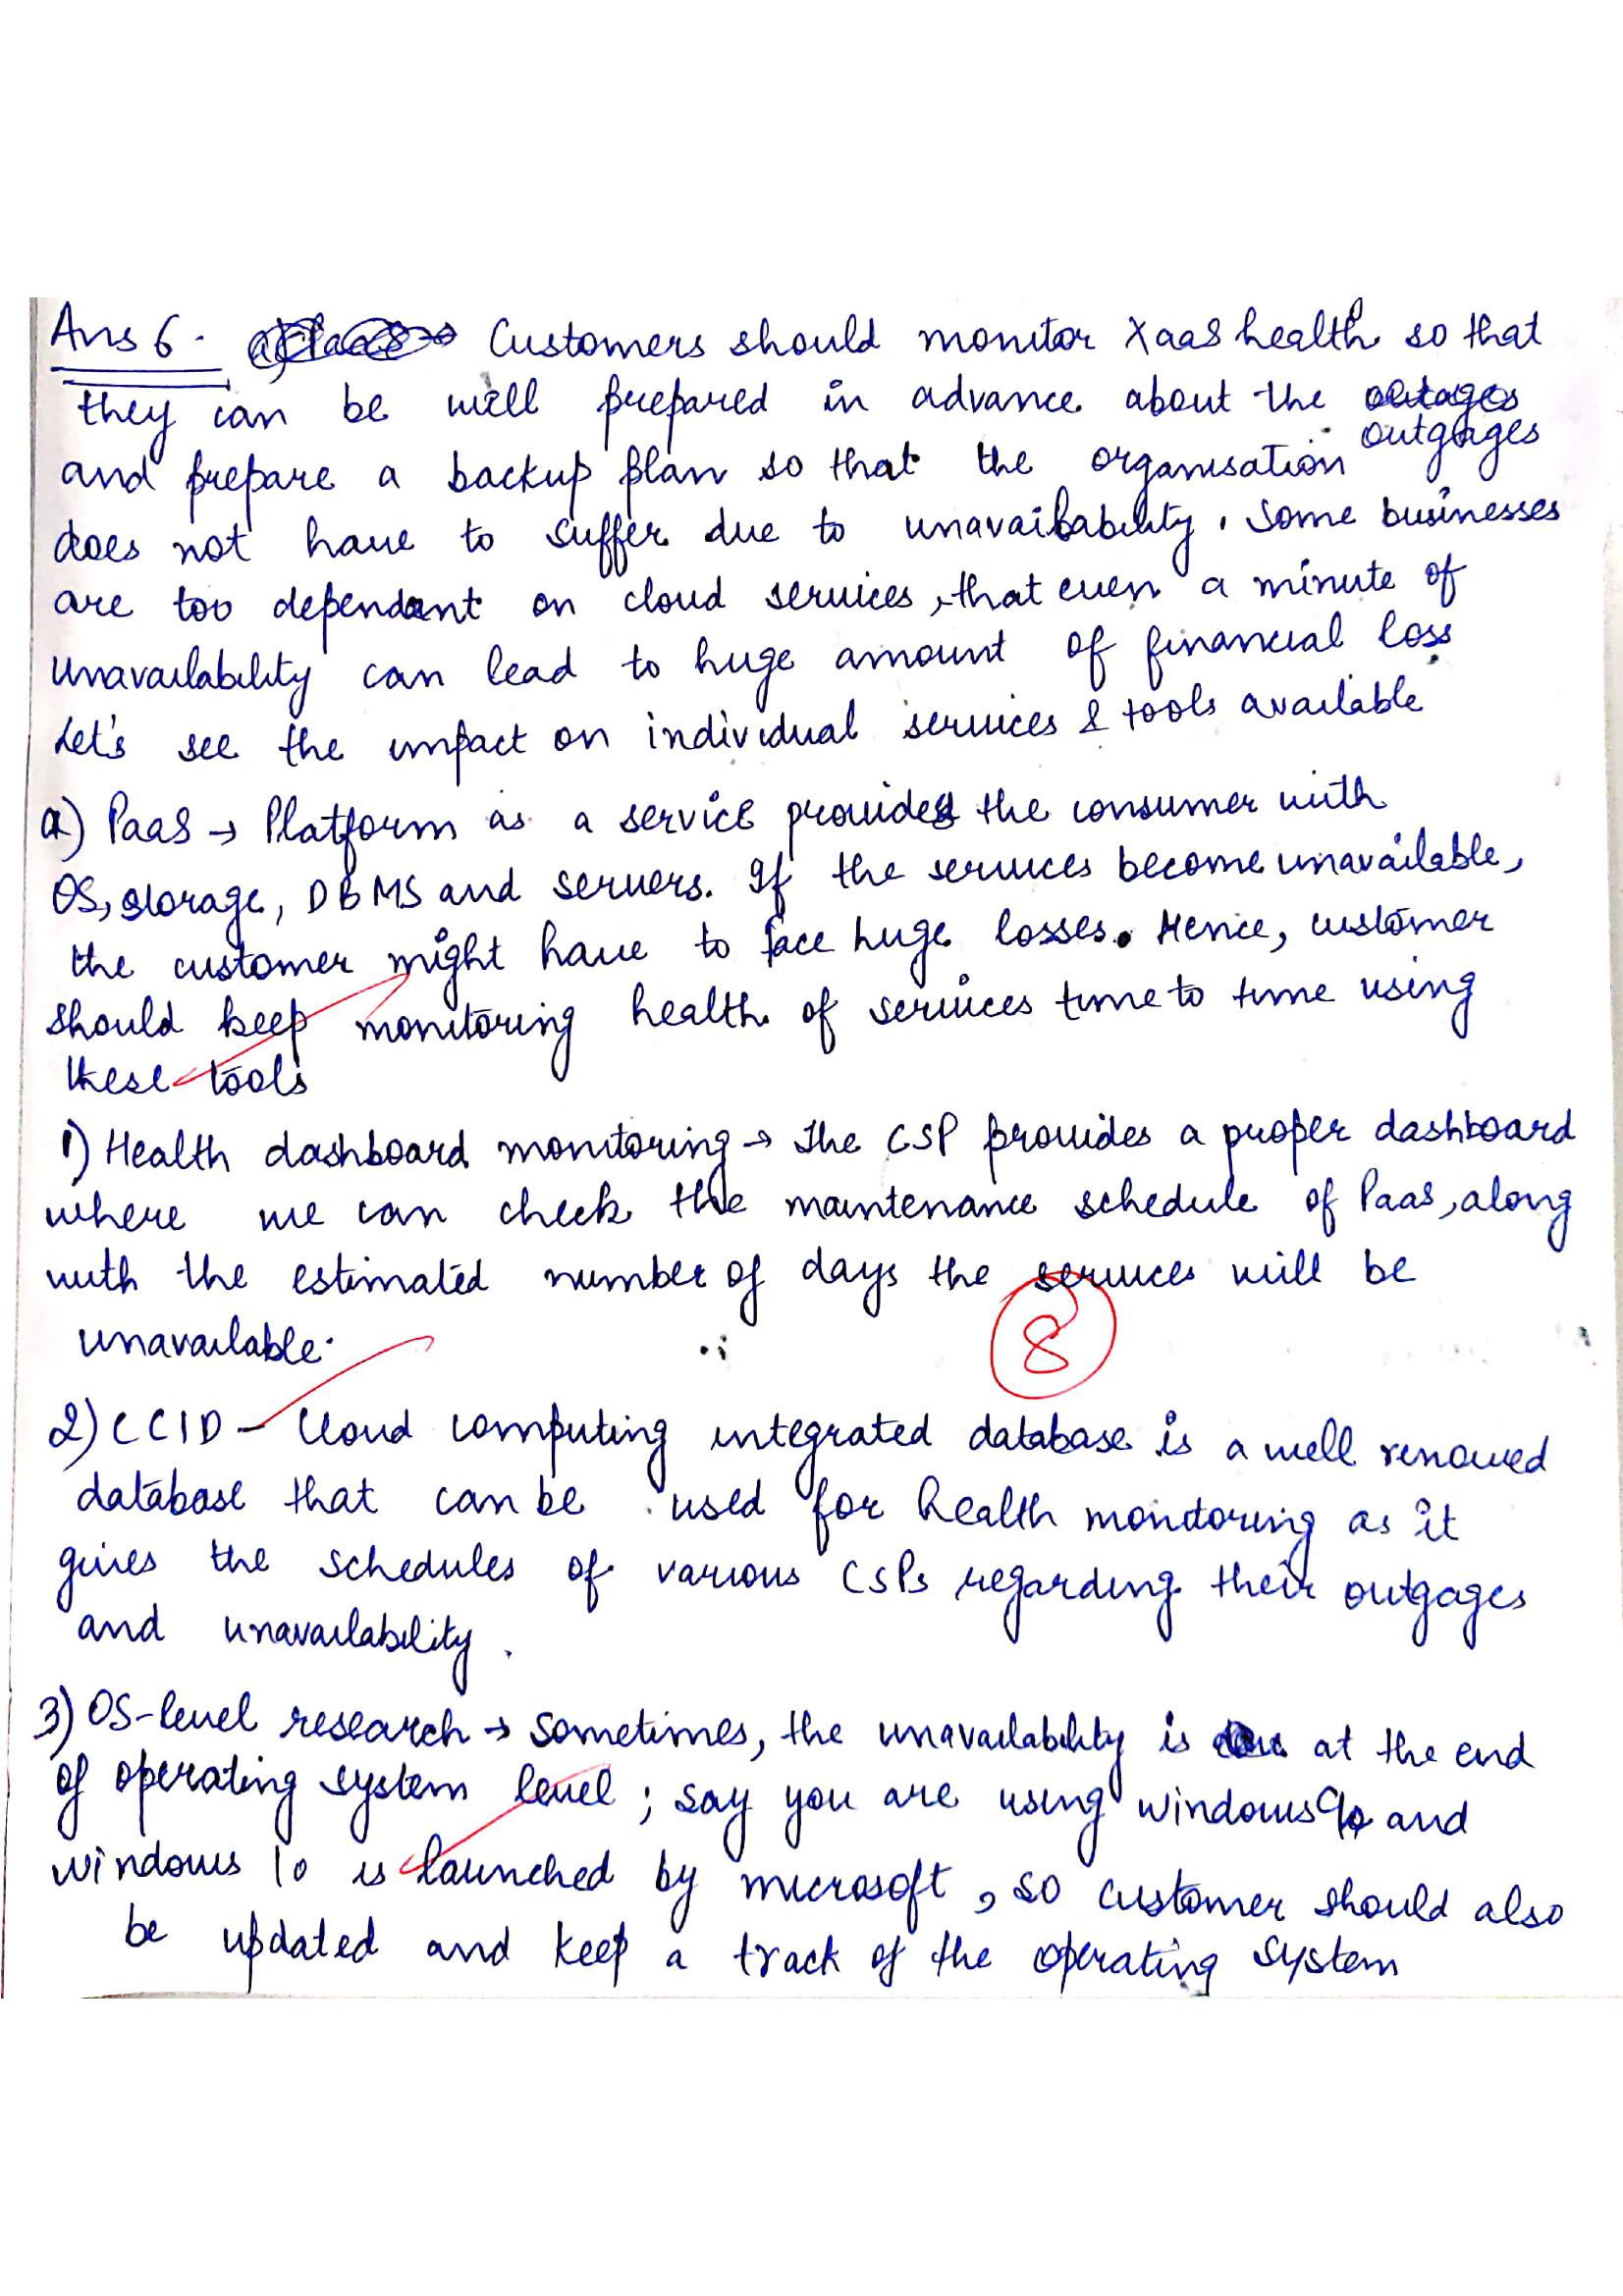 Ans 6. Customers should monitor XaaS health so that
they can be well prepared in advance about the outgages
and prepare a backup plan so that the organisation
does not have to suffer due to unavailability. Some businesses
are too dependent on cloud services, that even a minute of
unavailability can lead to huge amount of financial loss
Let's see the impact on individual services & tools available
a) PaaS → Platform as a service provides the consumer with
OS, storage, DBMS and servers. If the services become unavailable,
the customer might have to face huge losses. Hence, customer
should keep monitoring health of services time to time using
these tools
1) Health dashboard monitoring → The CSP provides a proper dashboard
where we can check the maintenance schedule of PaaS, along
with the estimated number of days the services will be
unavailable.
8
2) CCID - Cloud computing integrated database is a well renowed
database that can be used for health monitoring as it
gives the schedules of various CSPs regarding their outgages
and unavailability.
3) OS-level research → Sometimes, the unavailability is at the end
of operating system level; say you are using windows and
windows 10 is launched by microsoft, so customer should also
be updated and keep a track of the operating system